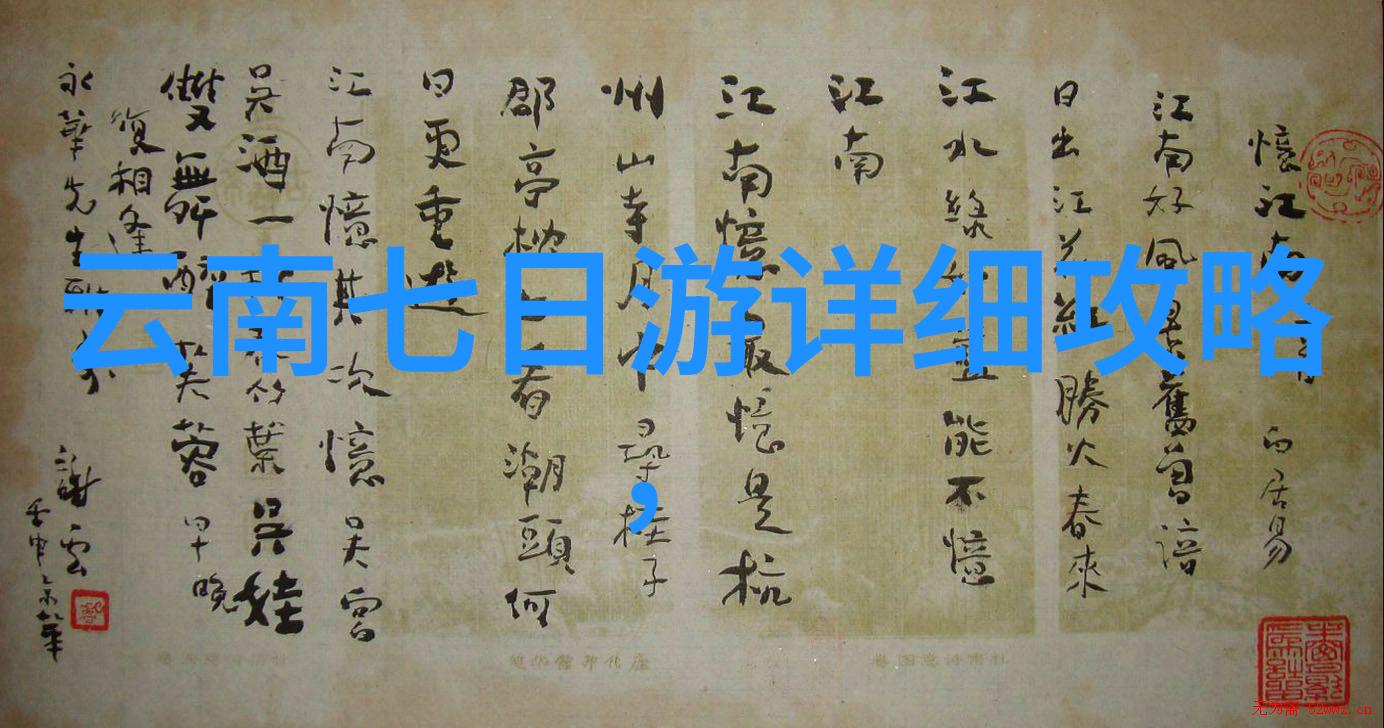 憶江南三首 白居易
江南好風景舊曾諳
日出江花紅勝火春來
江水綠如藍能不憶
江南
江南憶最憶是杭
州山寺月中尋桂子
郡亭枕上看潮頭何
日更重遊
江南憶其次憶吳宮
吳酒一杯春竹葉吳娃
雙舞醉芙蓉早晚
復相逢
永華先生
謝雲
云南七日游详细攻略
,